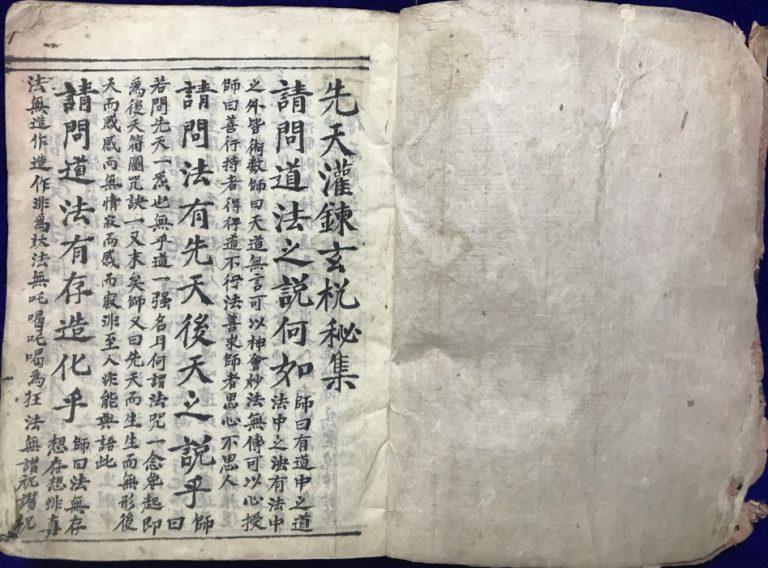 先天灌鍊玄梲秘集
請問道法之說何如 師曰有道中之道
法中之法有法中
之外皆術数師曰天道無言可以神會妙法無傳可以心授
師曰善行持者得得道不行法善求師者思心不思人
請問法有先天後天之說乎 師
曰
若問先天一炁也無乎道一强名耳何謂法咒一念舉起即
爲後天符圖咒訣一又末矣師又曰先天而生生而無形後
天而感感而無情寂而感而寂非至人非能與語此
請問道法有存造化乎 師曰法無存
想存想非真
法無造作造作非爲法無吒喝吒喝為狂法無祝祝